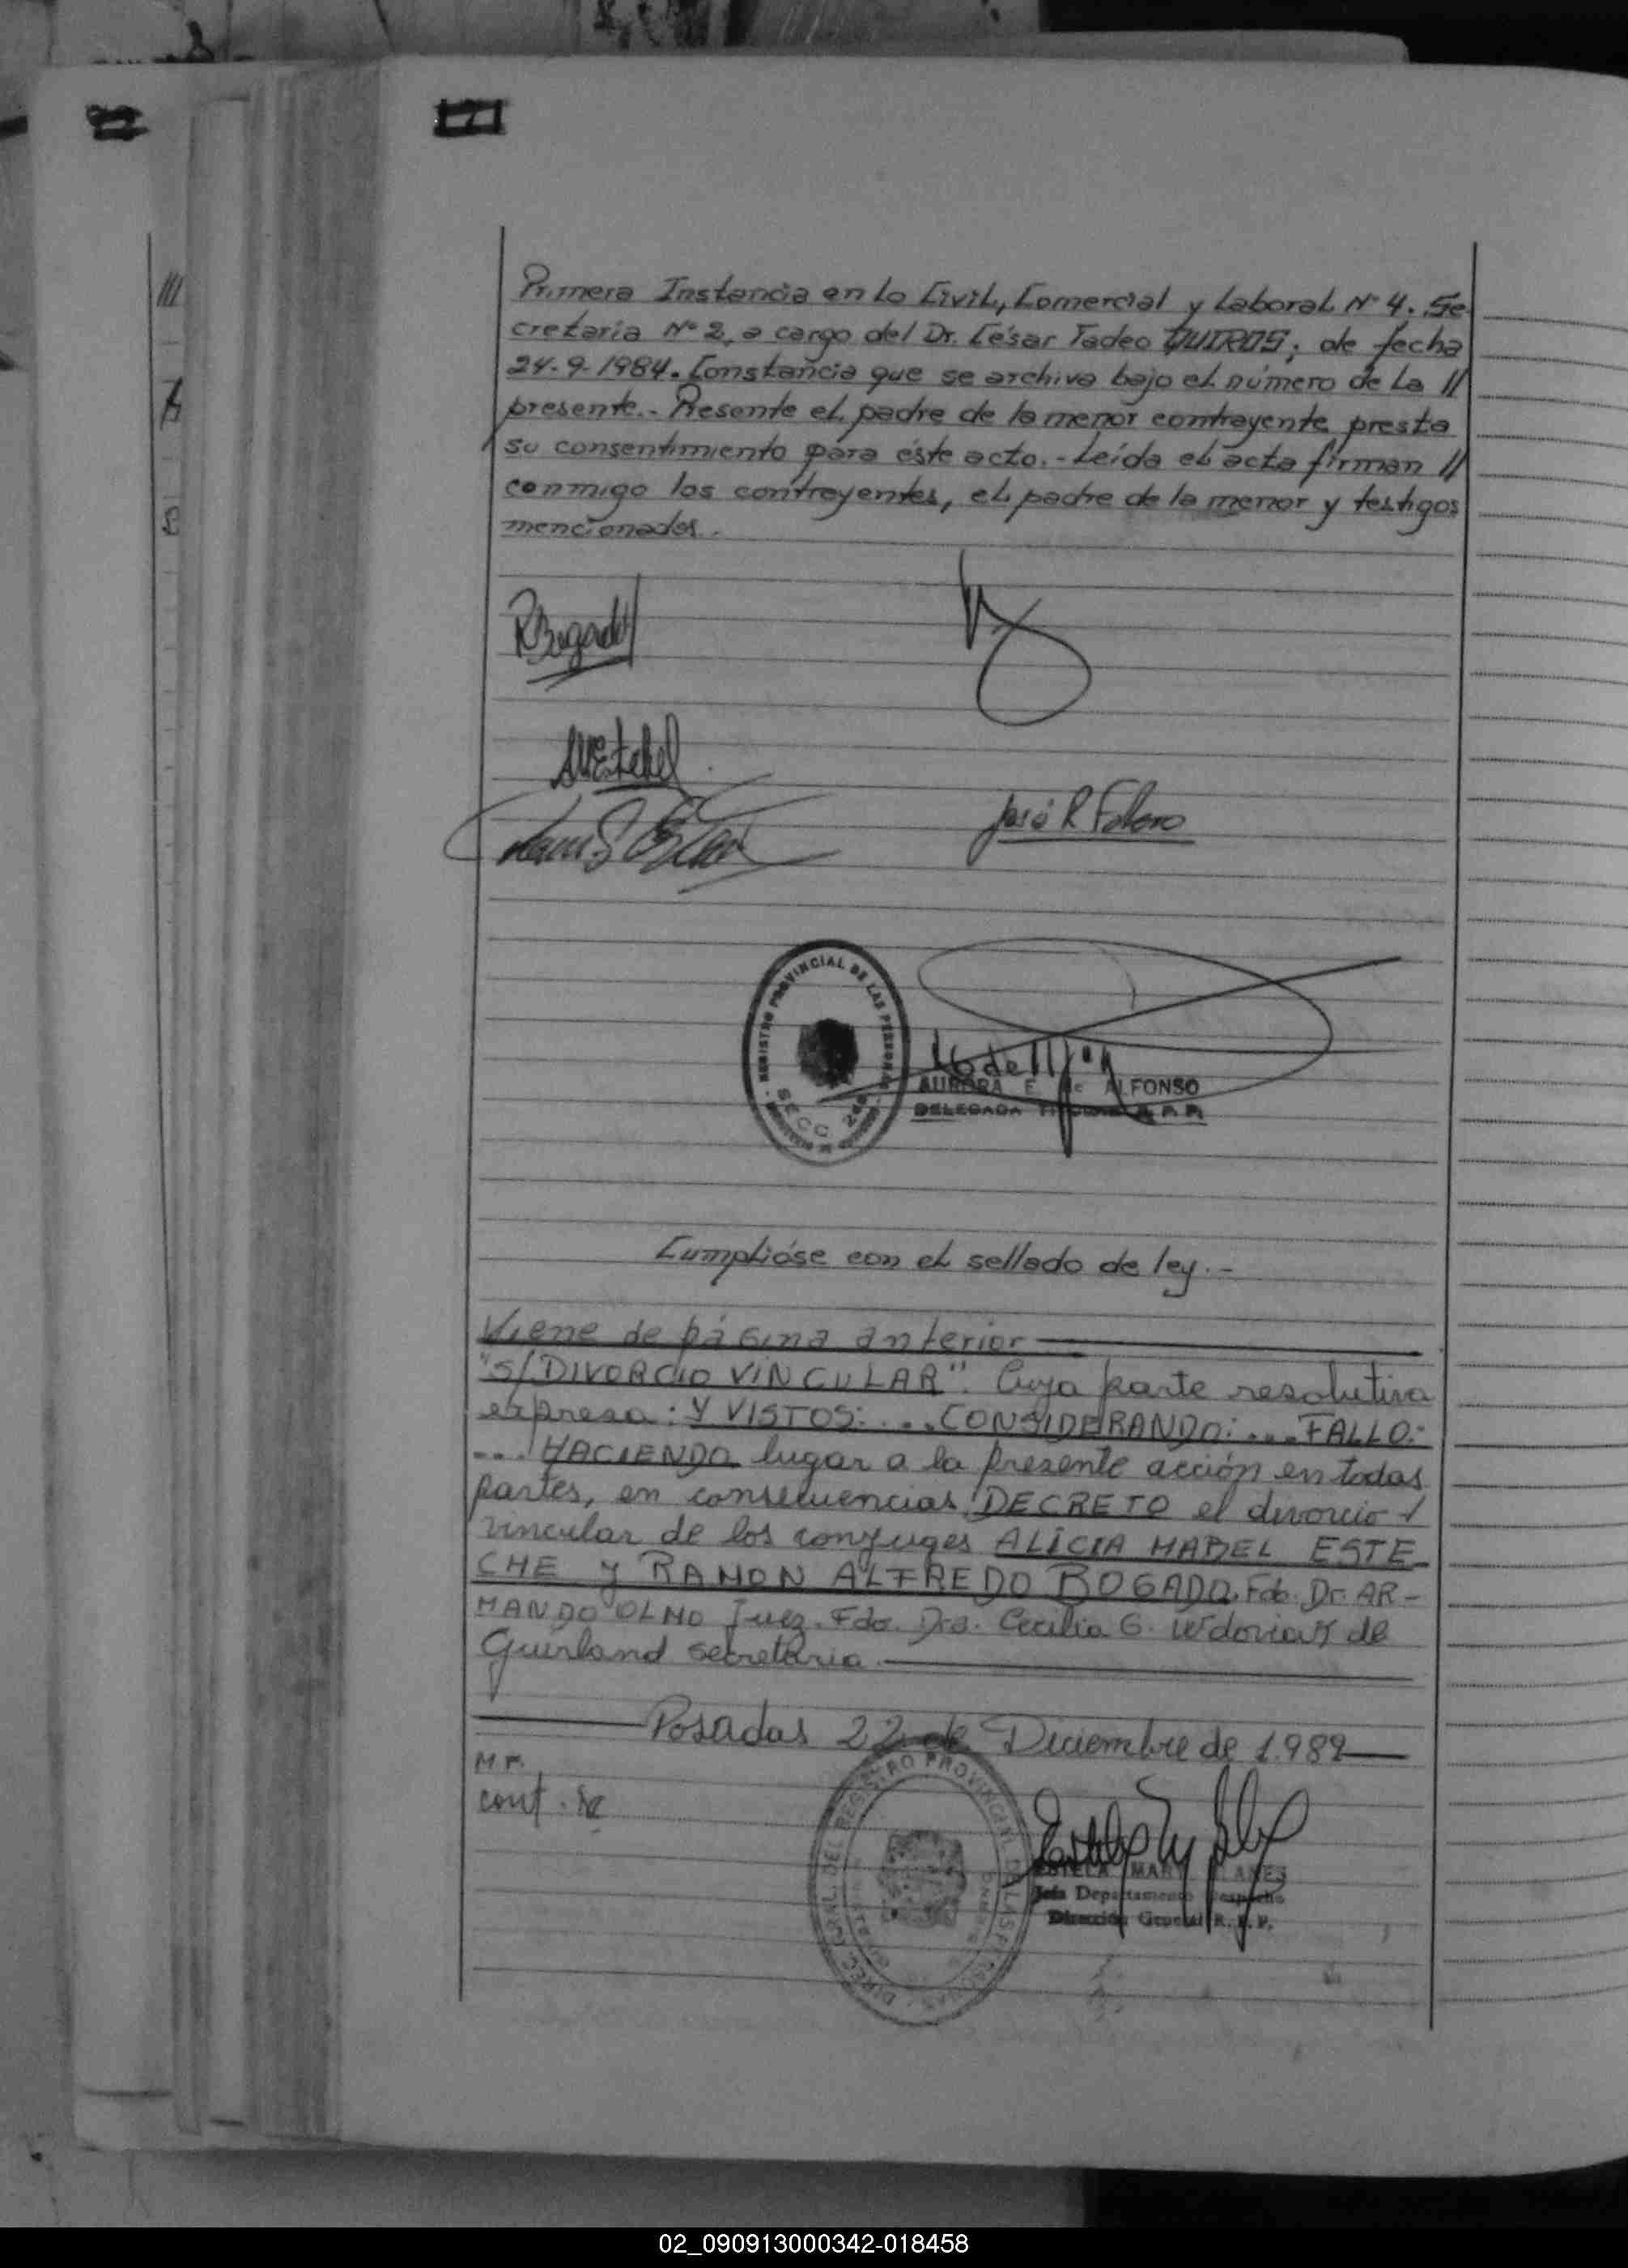 Primera Instancia en lo Civil, Comercial y Laboral N° 4. Se
cretaría N° 2, a cargo del Dr. César Tadeo QUIROS; de fecha
24-9-1984. Constancia que se archiva bajo el número de la //
presente.- Presente el padre de la menor contrayente presta
su consentimiento para éste acto.- Leída el acta firman //
conmigo los contrayentes, el padre de la menor y testigos
mencionados.-
RBogado
José R
REGISTRO PROVINCIAL DE LAS PERSONAS
SECC.
AURORA E. de ALFONSO
DELEGADA TITULAR R.P.P.
Cumplióse con el sellado de ley.-
Viene de página anterior
"S/DIVORCIO VINCULAR". Cuya parte resolutiva
expresa: Y VISTOS:... CONSIDERANDO:... FALLO:
... HACIENDO lugar a la presente acción en todas
partes, en consecuencias DECRETO el divorcio /
vincular de los conjuges ALICIA MABEL ESTE
CHE y RAMON ALFREDO BOGADO. Fdo. Dr. AR-
MANDO OLMO Juez. Fdo. Dra. Cecilia G. de
Guirland secretaria.
Posadas 22 de Diciembre de 1.989
M.F.
cont.
DIREC. GRAL. DEL REGISTRO PROVINCIAL DE LAS PERSONAS
ESTELA
Jefa Departamento Despacho
Dirección General R.P.P.
02_090913000342-018458